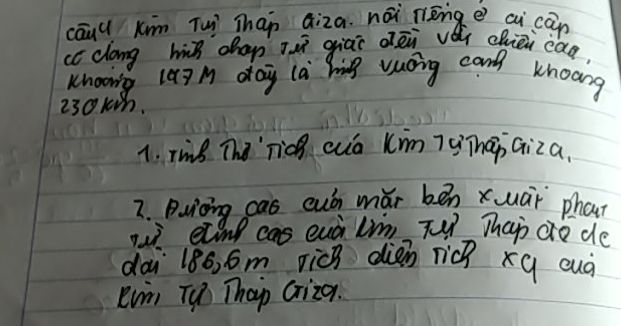 câu4 Kim Tự Tháp Giza. nổi tiếng ở ai cập
có dạng hình chóp tứ giác đều với chiều cao,
khoảng 147 M đáy là hình vuông cạnh khoảng
230 km.
1. Tính Thể Tích của Kim Tự Tháp Giza.
2. Đường cao của mặt bên xuất phát
từ đỉnh cao của kim Tự Tháp đo dc
dài 186,6m Tích diện Tích xq của
kim Tự Tháp Giza.